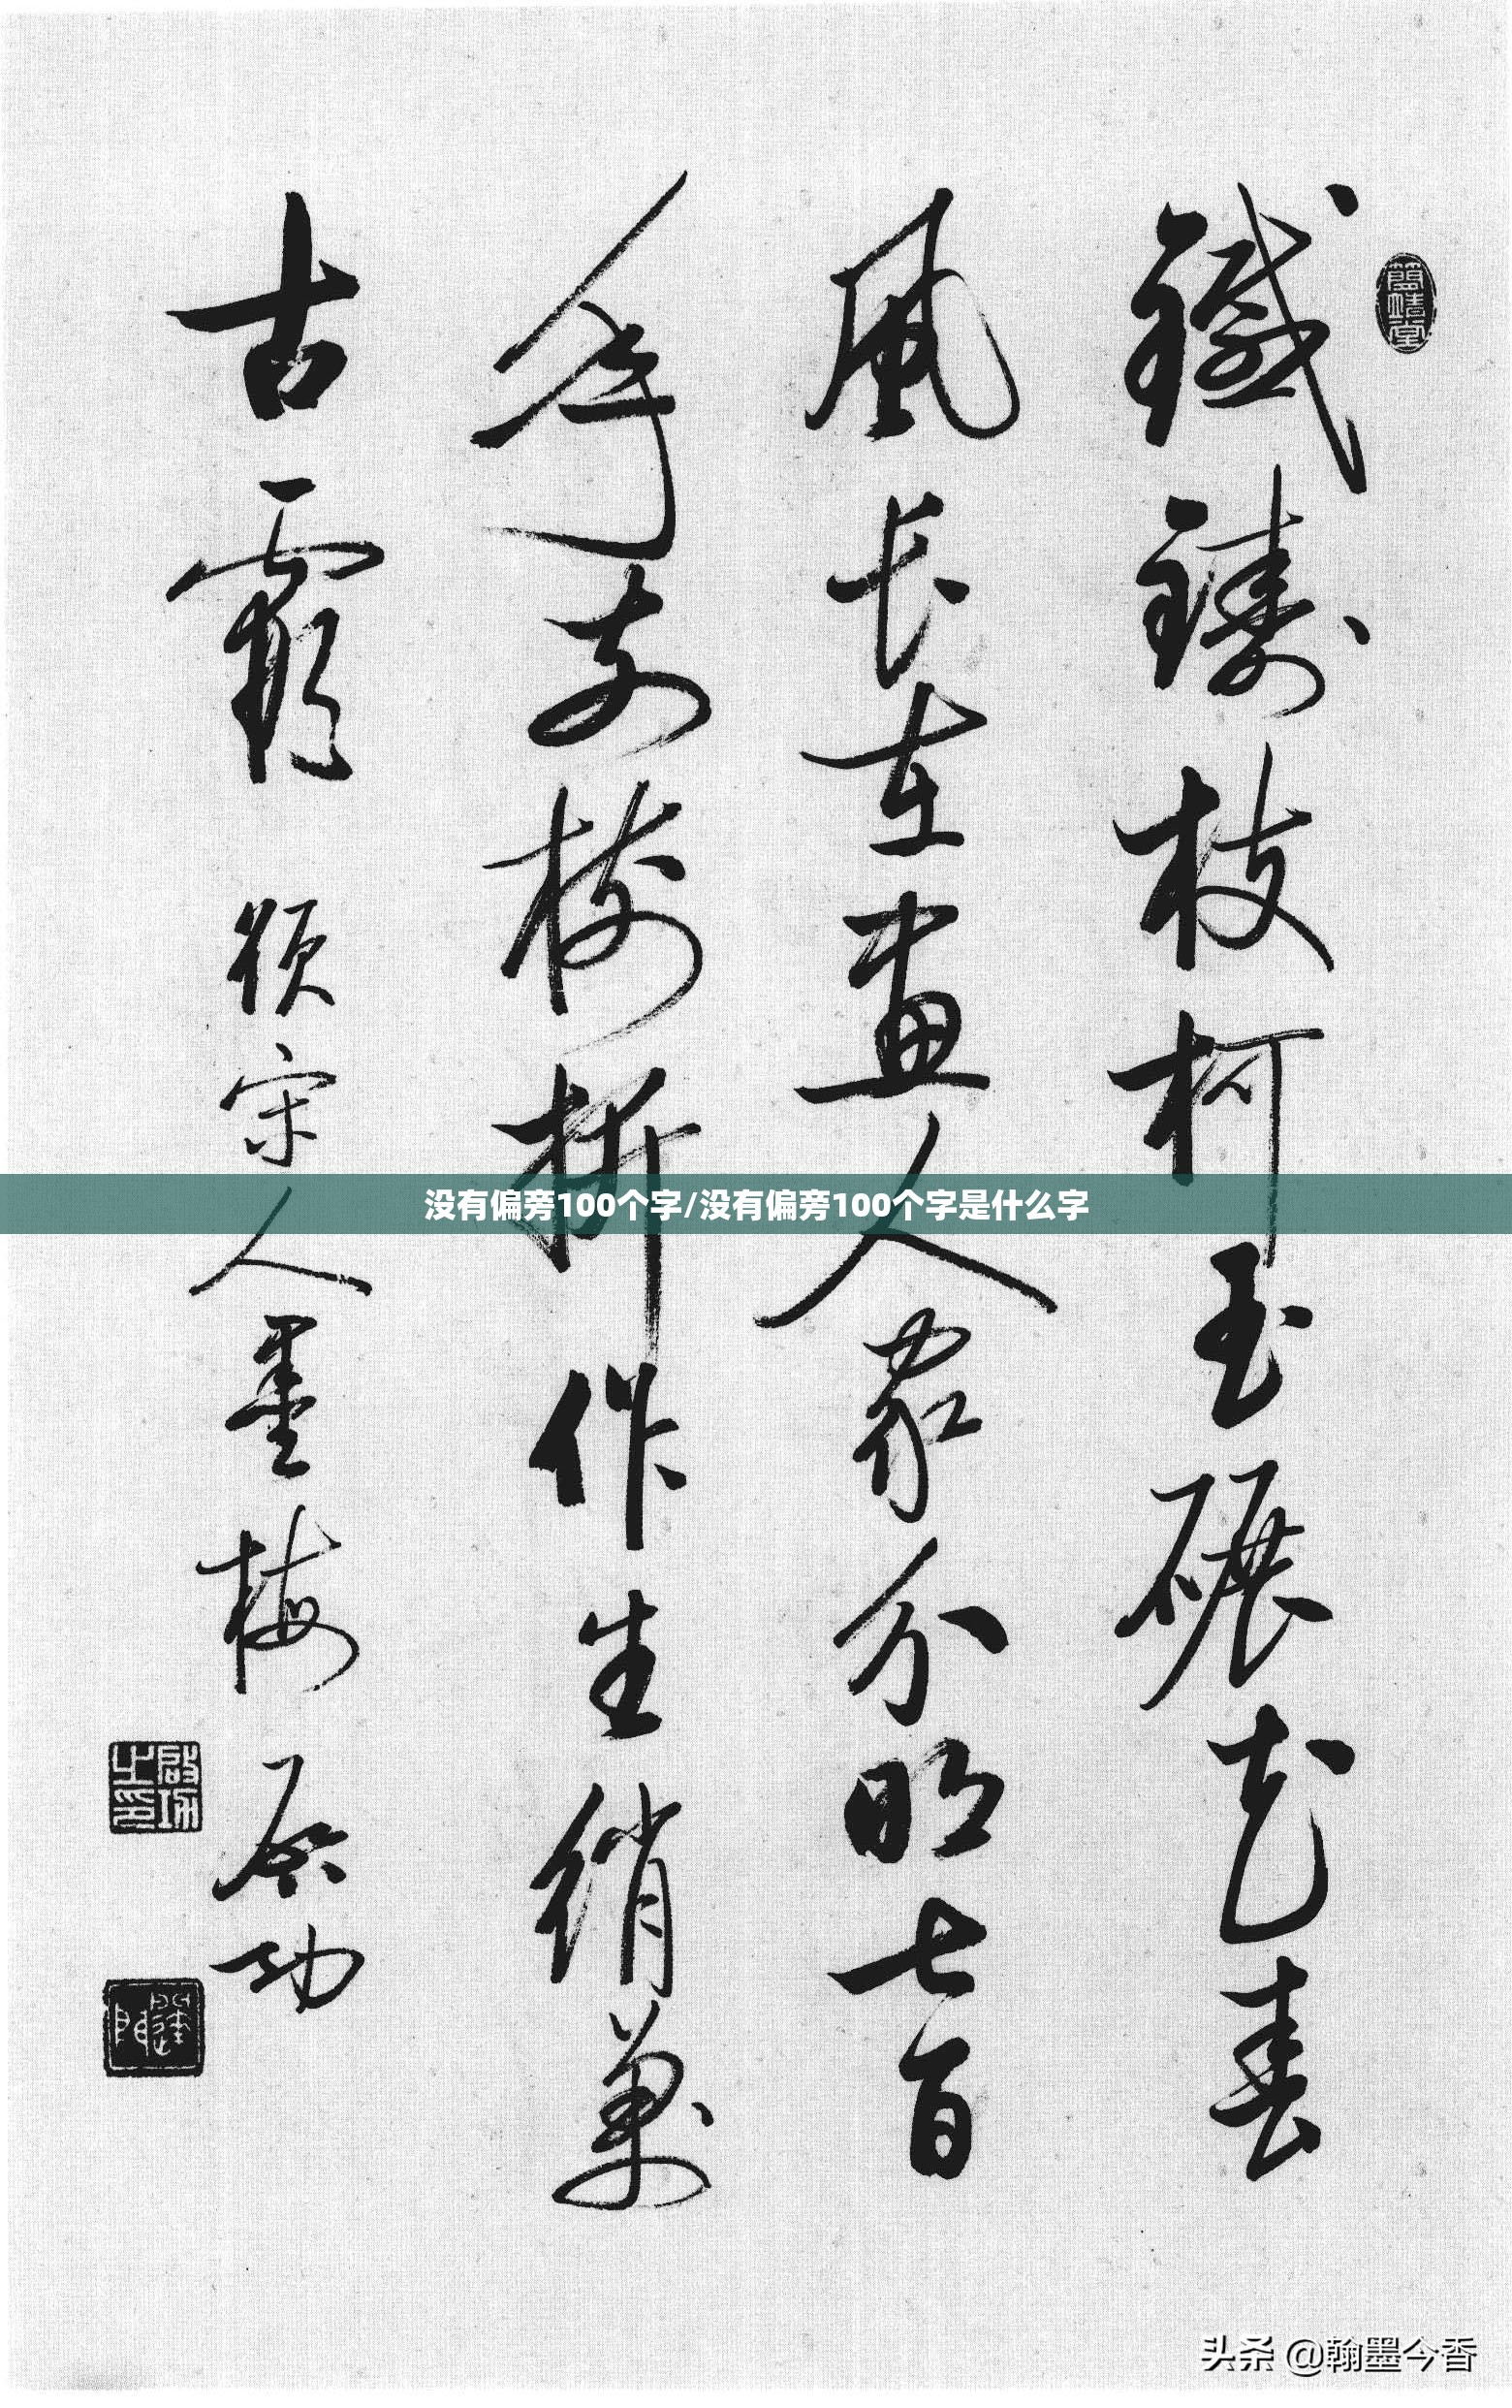 簡靖堂
鐵鑄枝柯玉碾花春
風长在畫人家分明七百
年前樹折作生綃萬
古霞 題宋人墨梅 启功
啟功之印
没有偏旁100个字/没有偏旁100个字是什么字
头条 @翰墨今香